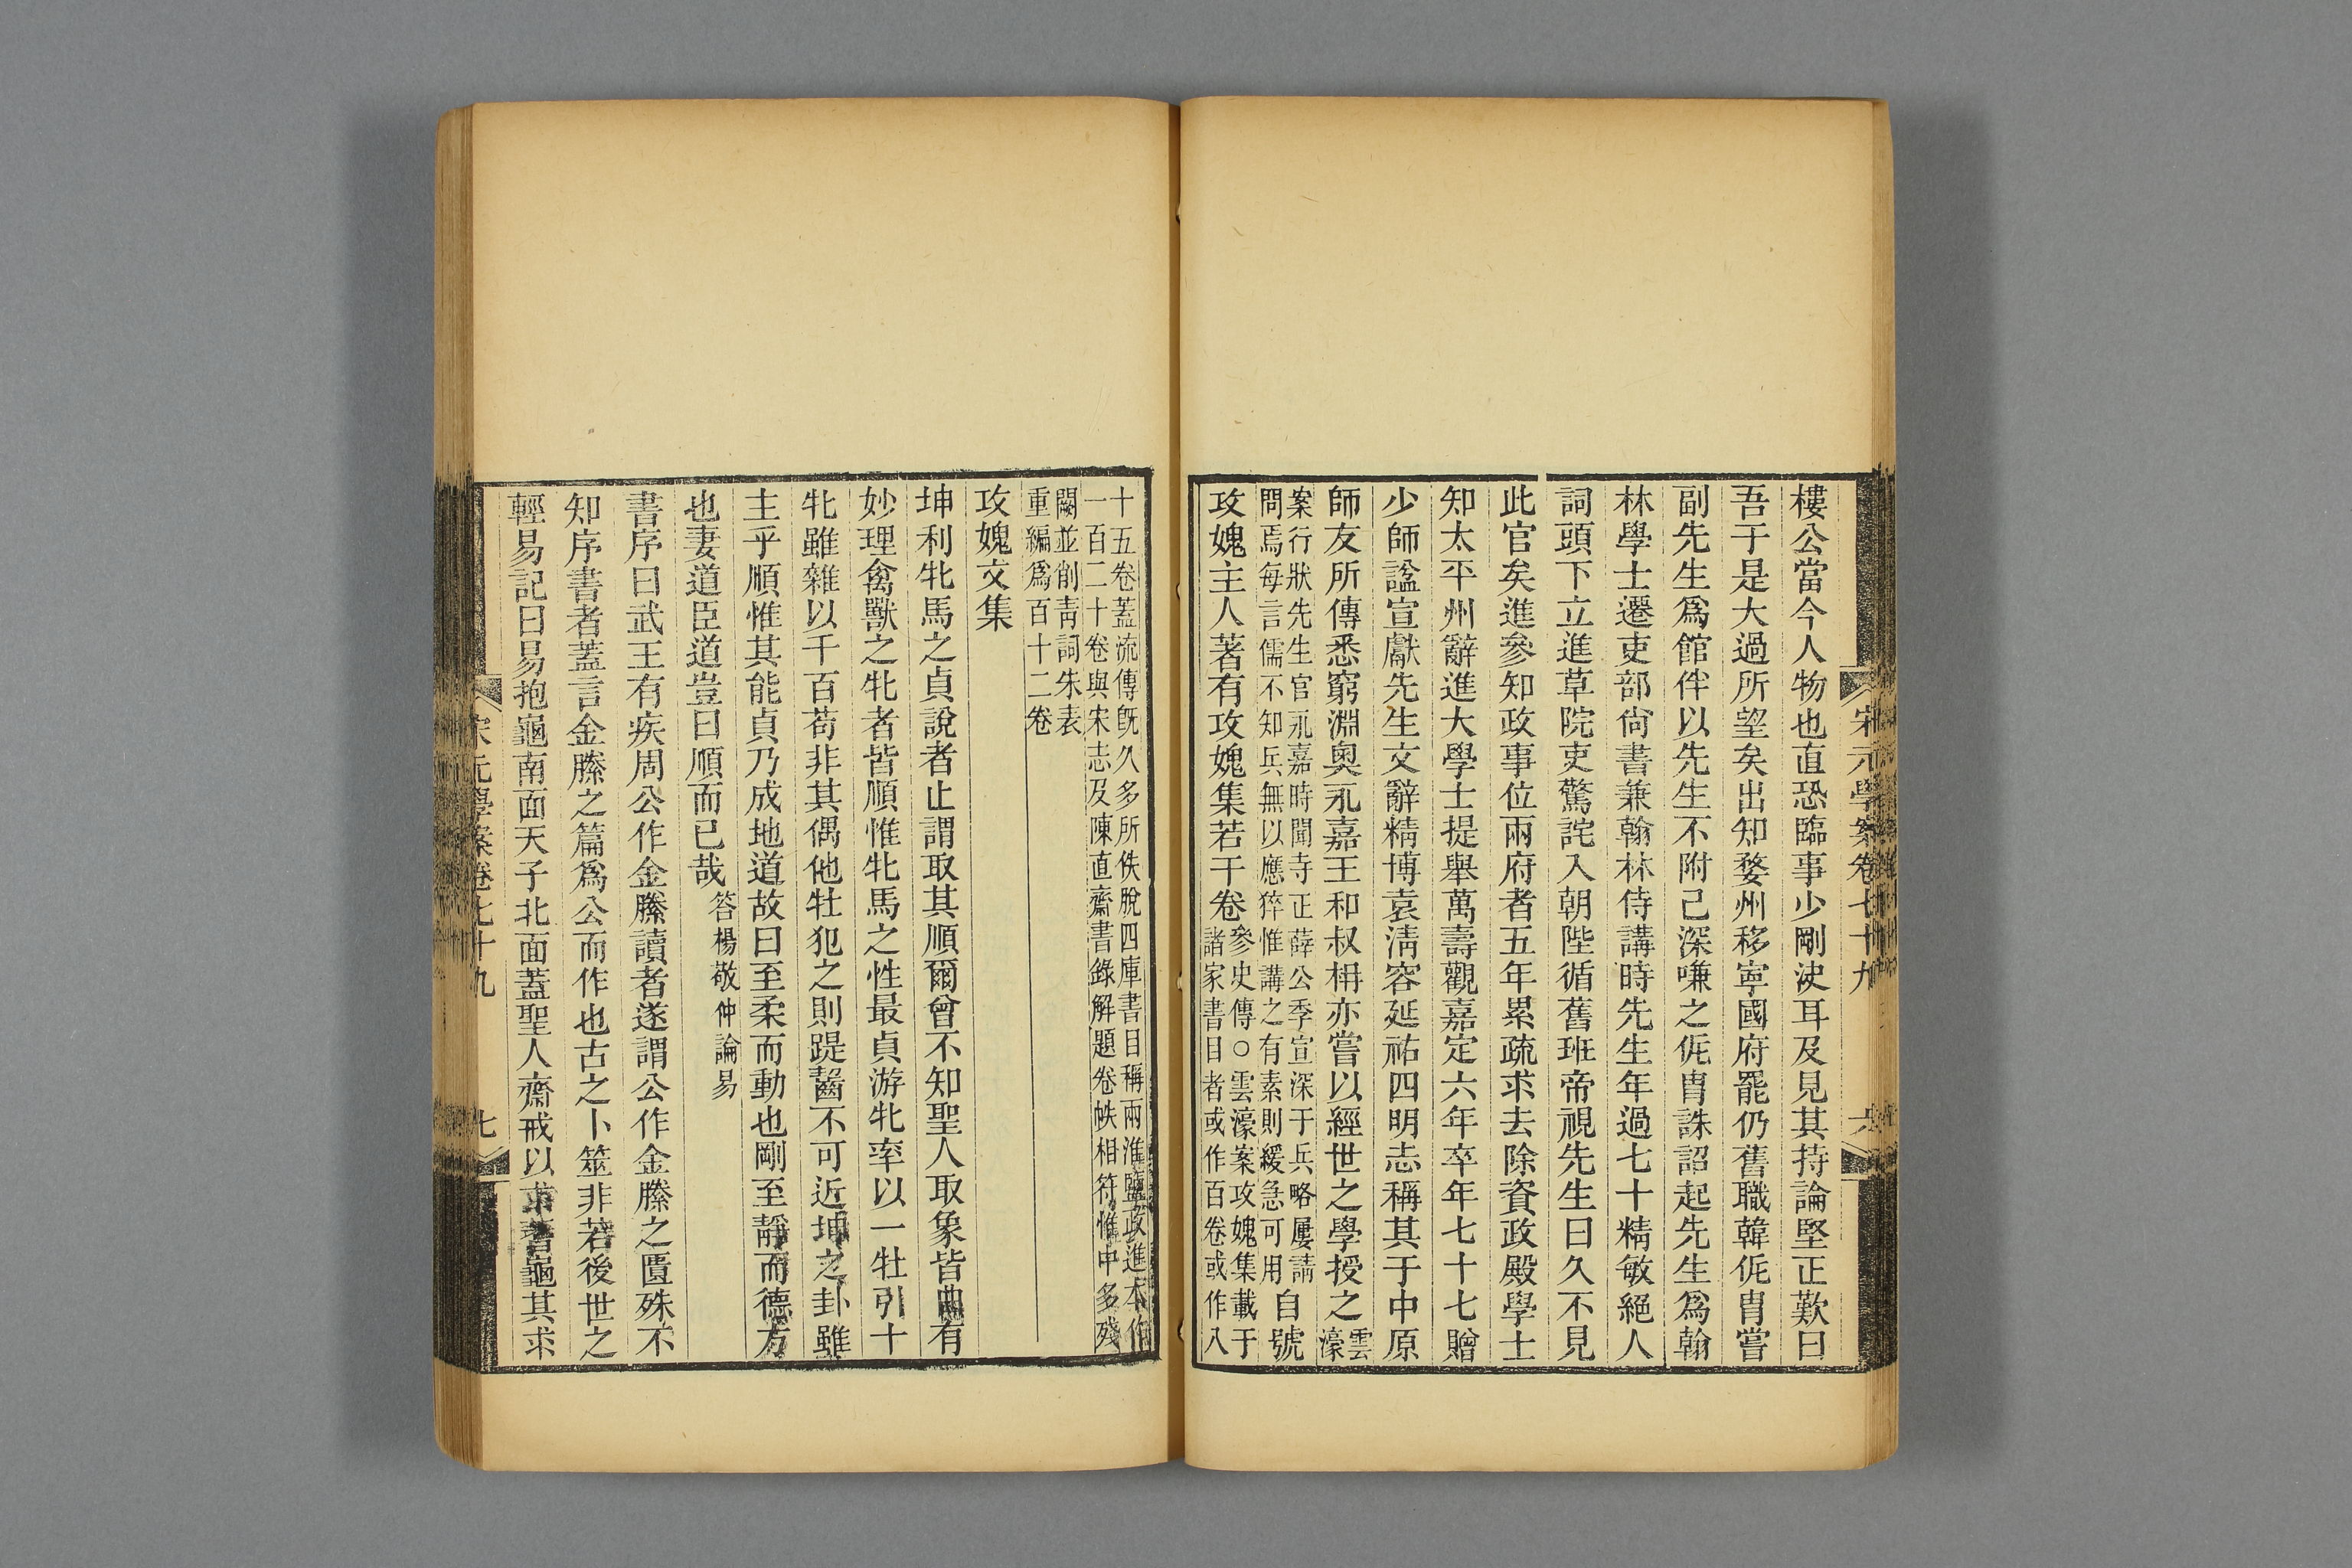 宋元學案卷七十九 六
樓公當今人物也直恐臨事少剛決耳及見其持論堅正歎曰
吾于是大過所望矣出知婺州移寧國府罷仍舊職韓侂胄嘗
副先生爲館伴以先生不附己深嗛之侂胄誅詔起先生爲翰
林學士遷吏部尙書兼翰林侍講時先生年過七十精敏絕人
詞頭下立進草院吏驚詫入朝陛循舊班帝視先生曰久不見
此官矣進參知政事位兩府者五年累疏求去除資政殿學士
知太平州辭進大學士提舉萬壽觀嘉定六年卒年七十七贈
少師諡宣獻先生文辭精博袁淸容延祐四明志稱其于中原
師友所傳悉窮淵奧永嘉王和叔枏亦嘗以經世之學授之雲濠
案行狀先生官永嘉時聞寺正薛公季宣深于兵略屢請
問焉每言儒不知兵無以應猝惟講之有素則緩急可用自號
攻媿主人著有攻媿集若干卷參史傳○雲濠案攻媿集載于
諸家書目者或作百卷或作八
十五卷蓋流傳旣久多所佚脫四庫書目稱兩淮鹽政進本作
一百二十卷與宋志及陳直齋書錄解題卷帙相符惟中多殘
闕並削靑詞朱表
重編爲百十二卷
攻媿文集
坤利牝馬之貞說者止謂取其順爾曾不知聖人取象皆曲有
妙理禽獸之牝者皆順惟牝馬之性最貞游牝率以一牡引十
牝雖雜以千百苟非其偶他牡犯之則踶齧不可近坤之卦雖
主乎順惟其能貞乃成地道故曰至柔而動也剛至靜而德方
也妻道臣道豈曰順而已哉答楊敬仲論易
書序曰武王有疾周公作金縢讀者遂謂公作金縢之匱殊不
知序書者蓋言金縢之篇爲公而作也古之卜筮非若後世之
輕易記曰易抱龜南面天子北面蓋聖人齋戒以求蓍龜其求
宋元學案卷七十九 七